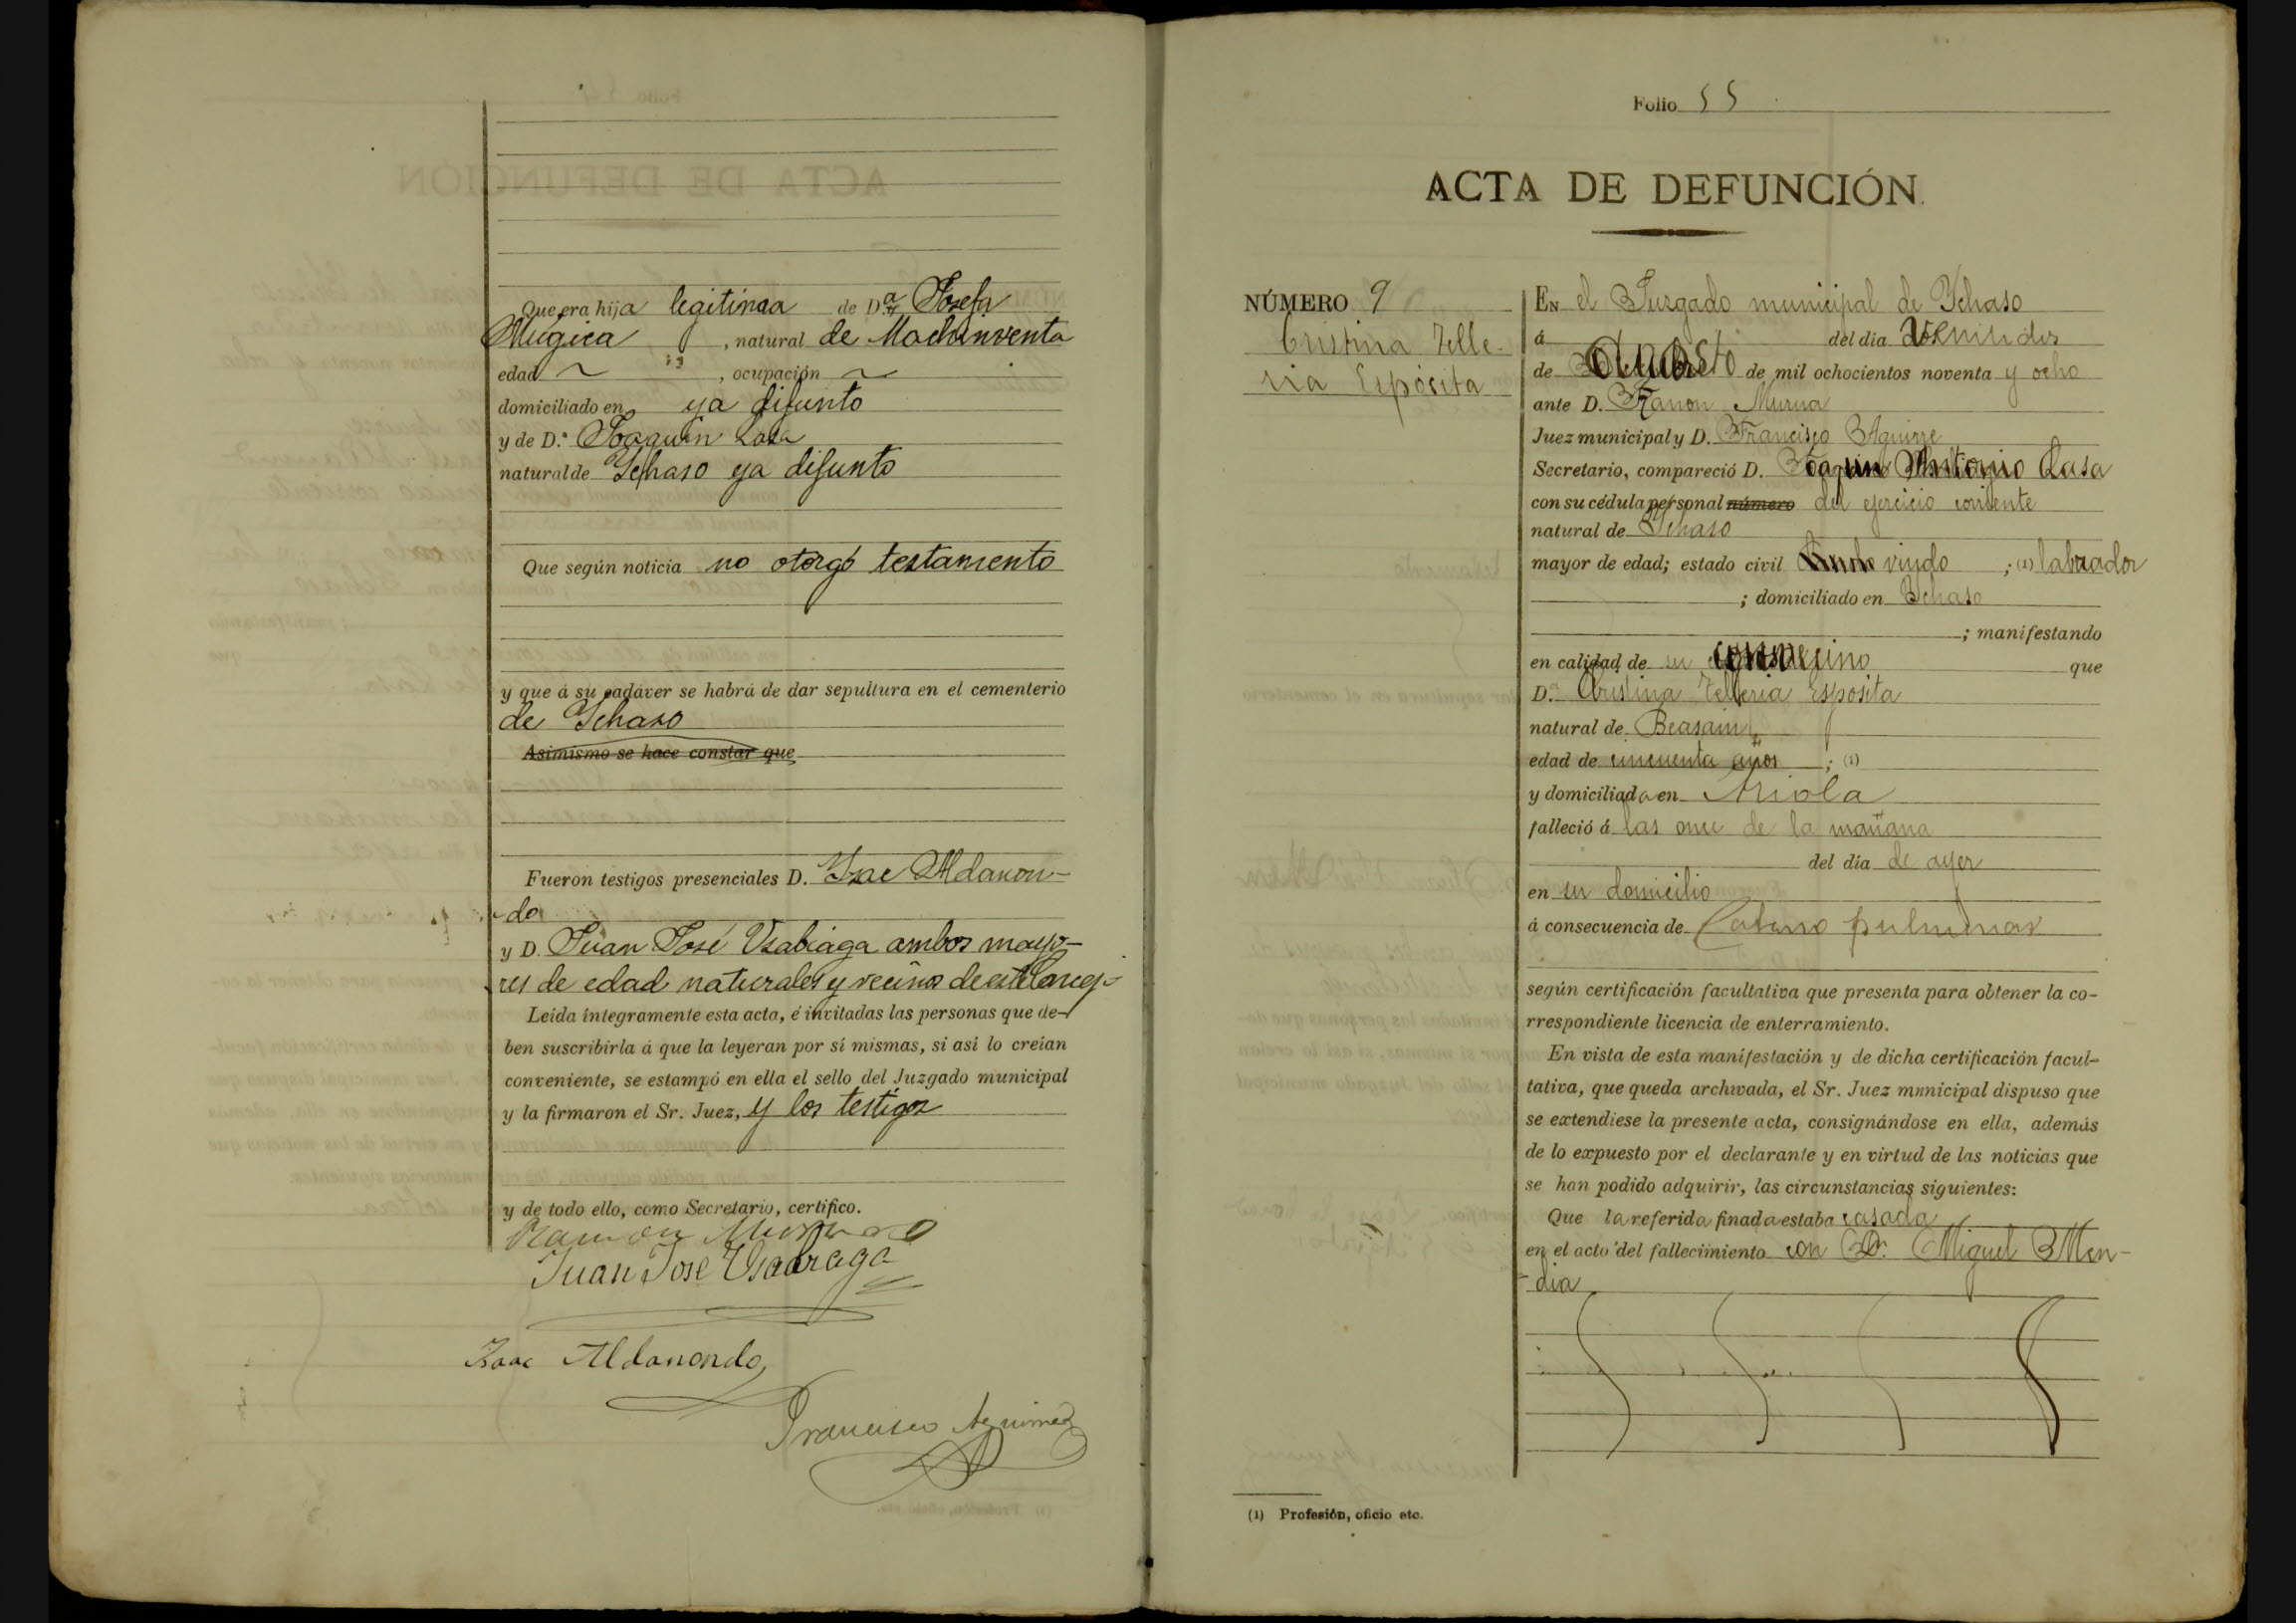 Que era hija legitimaa de D.ª Josefa
Mugica, natural de Machinventa
edad ~, ocupación ~
domiciliado en ya difunto
y de D.n Joaquin Lasa
natural de Ychaso ya difunto
Que según noticia no otorgó testamento
y que á su cadáver se habrá de dar sepultura en el cementerio
de Ychaso
Asimismo se hace constar que
Fueron testigos presenciales D. Ysac Aldanon-
do
y D. Juan José Usabiaga ambos mayo-
res de edad naturales y vecinos de este Concej-
Leída íntegramente esta acta, é invitadas las personas que de-
ben suscribirla á que la leyeran por sí mismas, si así lo creían
conveniente, se estampó en ella el sello del Juzgado municipal
y la firmaron el Sr. Juez, y los testigos
y de todo ello, como Secretario, certifico.
Ramon Murua
Juan Jose Usabiaga
Isaac Aldanondo
Francisco Aguirre
Folio 55
ACTA DE DEFUNCIÓN.
NÚMERO 9
Cristina Telle-
ria Esposita
EN el Juzgado municipal de Ychaso
á del día
de Agosto de mil ochocientos noventa y ocho
ante D. Ramon Murua
Juez municipal y D. Francisco Aguirre
Secretario, compareció D. Joaquin Antonio Lasa
con su cédula personal número del ejercicio corriente
natural de Ychaso
mayor de edad; estado civil viudo; (1) labrador
; domiciliado en Ychaso
; manifestando
en calidad de su convecino que
D.ª Cristina Telleria Esposita
natural de Beasain
edad de cincuenta años; (1)
y domiciliada en Ariola
falleció á las once de la mañana
del día de ayer
en su domicilio
á consecuencia de Catarro pulmonar
según certificación facultativa que presenta para obtener la co-
rrespondiente licencia de enterramiento.
En vista de esta manifestación y de dicha certificación facul-
tativa, que queda archivada, el Sr. Juez municipal dispuso que
se extendiese la presente acta, consignándose en ella, además
de lo expuesto por el declarante y en virtud de las noticias que
se han podido adquirir, las circunstancias siguientes:
Que la referida finada estaba casada
en el acto del fallecimiento con D.n Miguel Men-
dia
(1) Profesión, oficio etc.